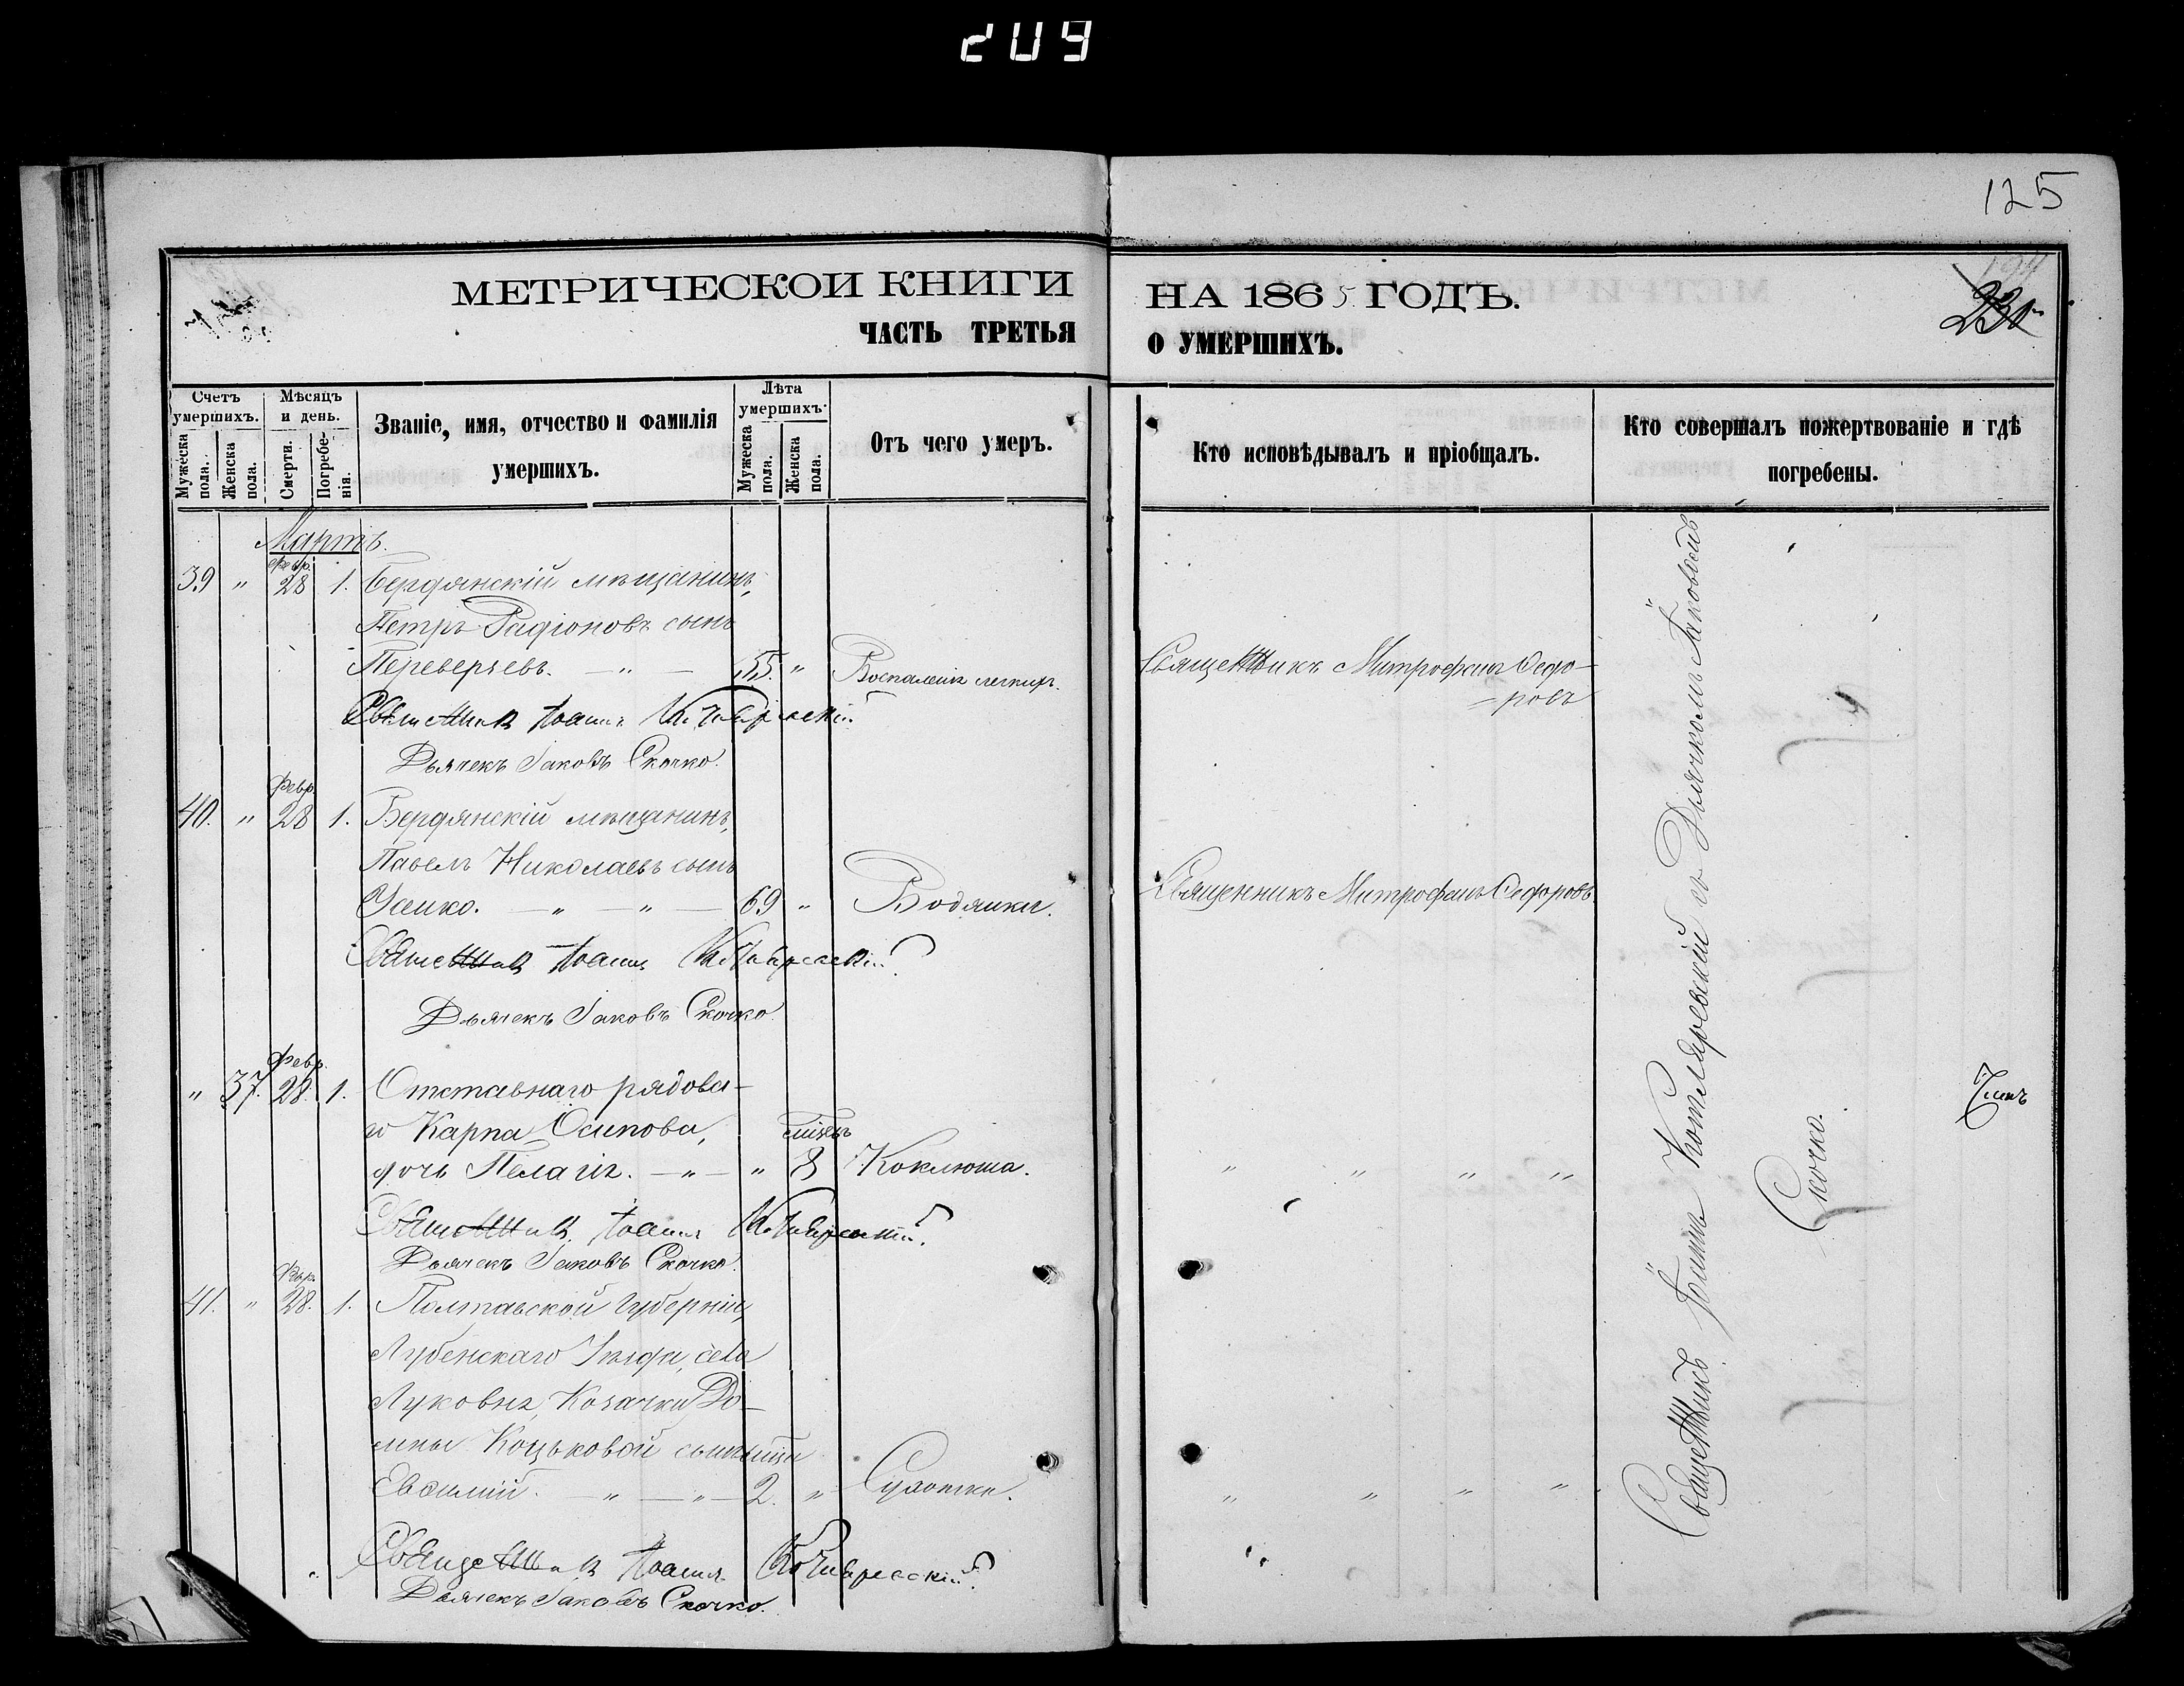 209
125
МЕТРИЧЕСКОИ КНИГИ
ЧАСТЬ ТРЕТЬЯ
НА 1865 ГОДЪ.
О УМЕРШИХЪ.
194
231
Счетъ умершихъ.
Мужеска пола.
Женска пола.
Мѣсяцъ и день.
Смерти.
Погребенія.
Званіе, имя, отчество и фамилія
умершихъ.
Лѣта умершихъ.
Мужеска пола.
Женска пола.
Отъ чего умеръ.
Кто исповѣдывалъ и пріобщалъ.
Кто совершалъ пожертвованіе и гдѣ
погребены.
Мартъ.
Февр.
39 " 28 1. Бердянскій мѣщанинъ,
Петръ Радіоновъ сынъ
Переверзевъ. — " — 55. " Воспаленія легкихъ.
Священникъ Митрофанъ Ѳедо-
ровъ
Священникъ Іоаннъ Котляревскій
Дьячекъ Іаковъ Скочко.
Февр.
40. " 28 1. Бердянскій мѣщанинъ,
Павелъ Николаевъ сынъ
Усенко. — " — " — 69 " Водянки.
Священникъ Митрофанъ Ѳедоровъ
Священникъ Іоаннъ Котляревскій
Дьячекъ Іаковъ Скочко
Февр.
" 37. 28. 1. Отставнаго рядова-
го Карпа Осипова,
дочь Пелагія. — " — " 8 Коклюша.
" " " "
Священникъ Іоаннъ Котляревскій
Дьячекъ Іаковъ Скочко.
Февр.
41. " 28. 1. Полтавской Губерніи,
Лубенскаго Уѣзда, села
Козачки До-
мны
— " — " — 2. " Сухотки.
" " " "
Священникъ Іоаннъ Котляревскій
Дьячекъ Іаковъ Скочко.
Священникъ Іоаннъ Котляревскій съ Дьячкомъ Іаковомъ
Скочко.